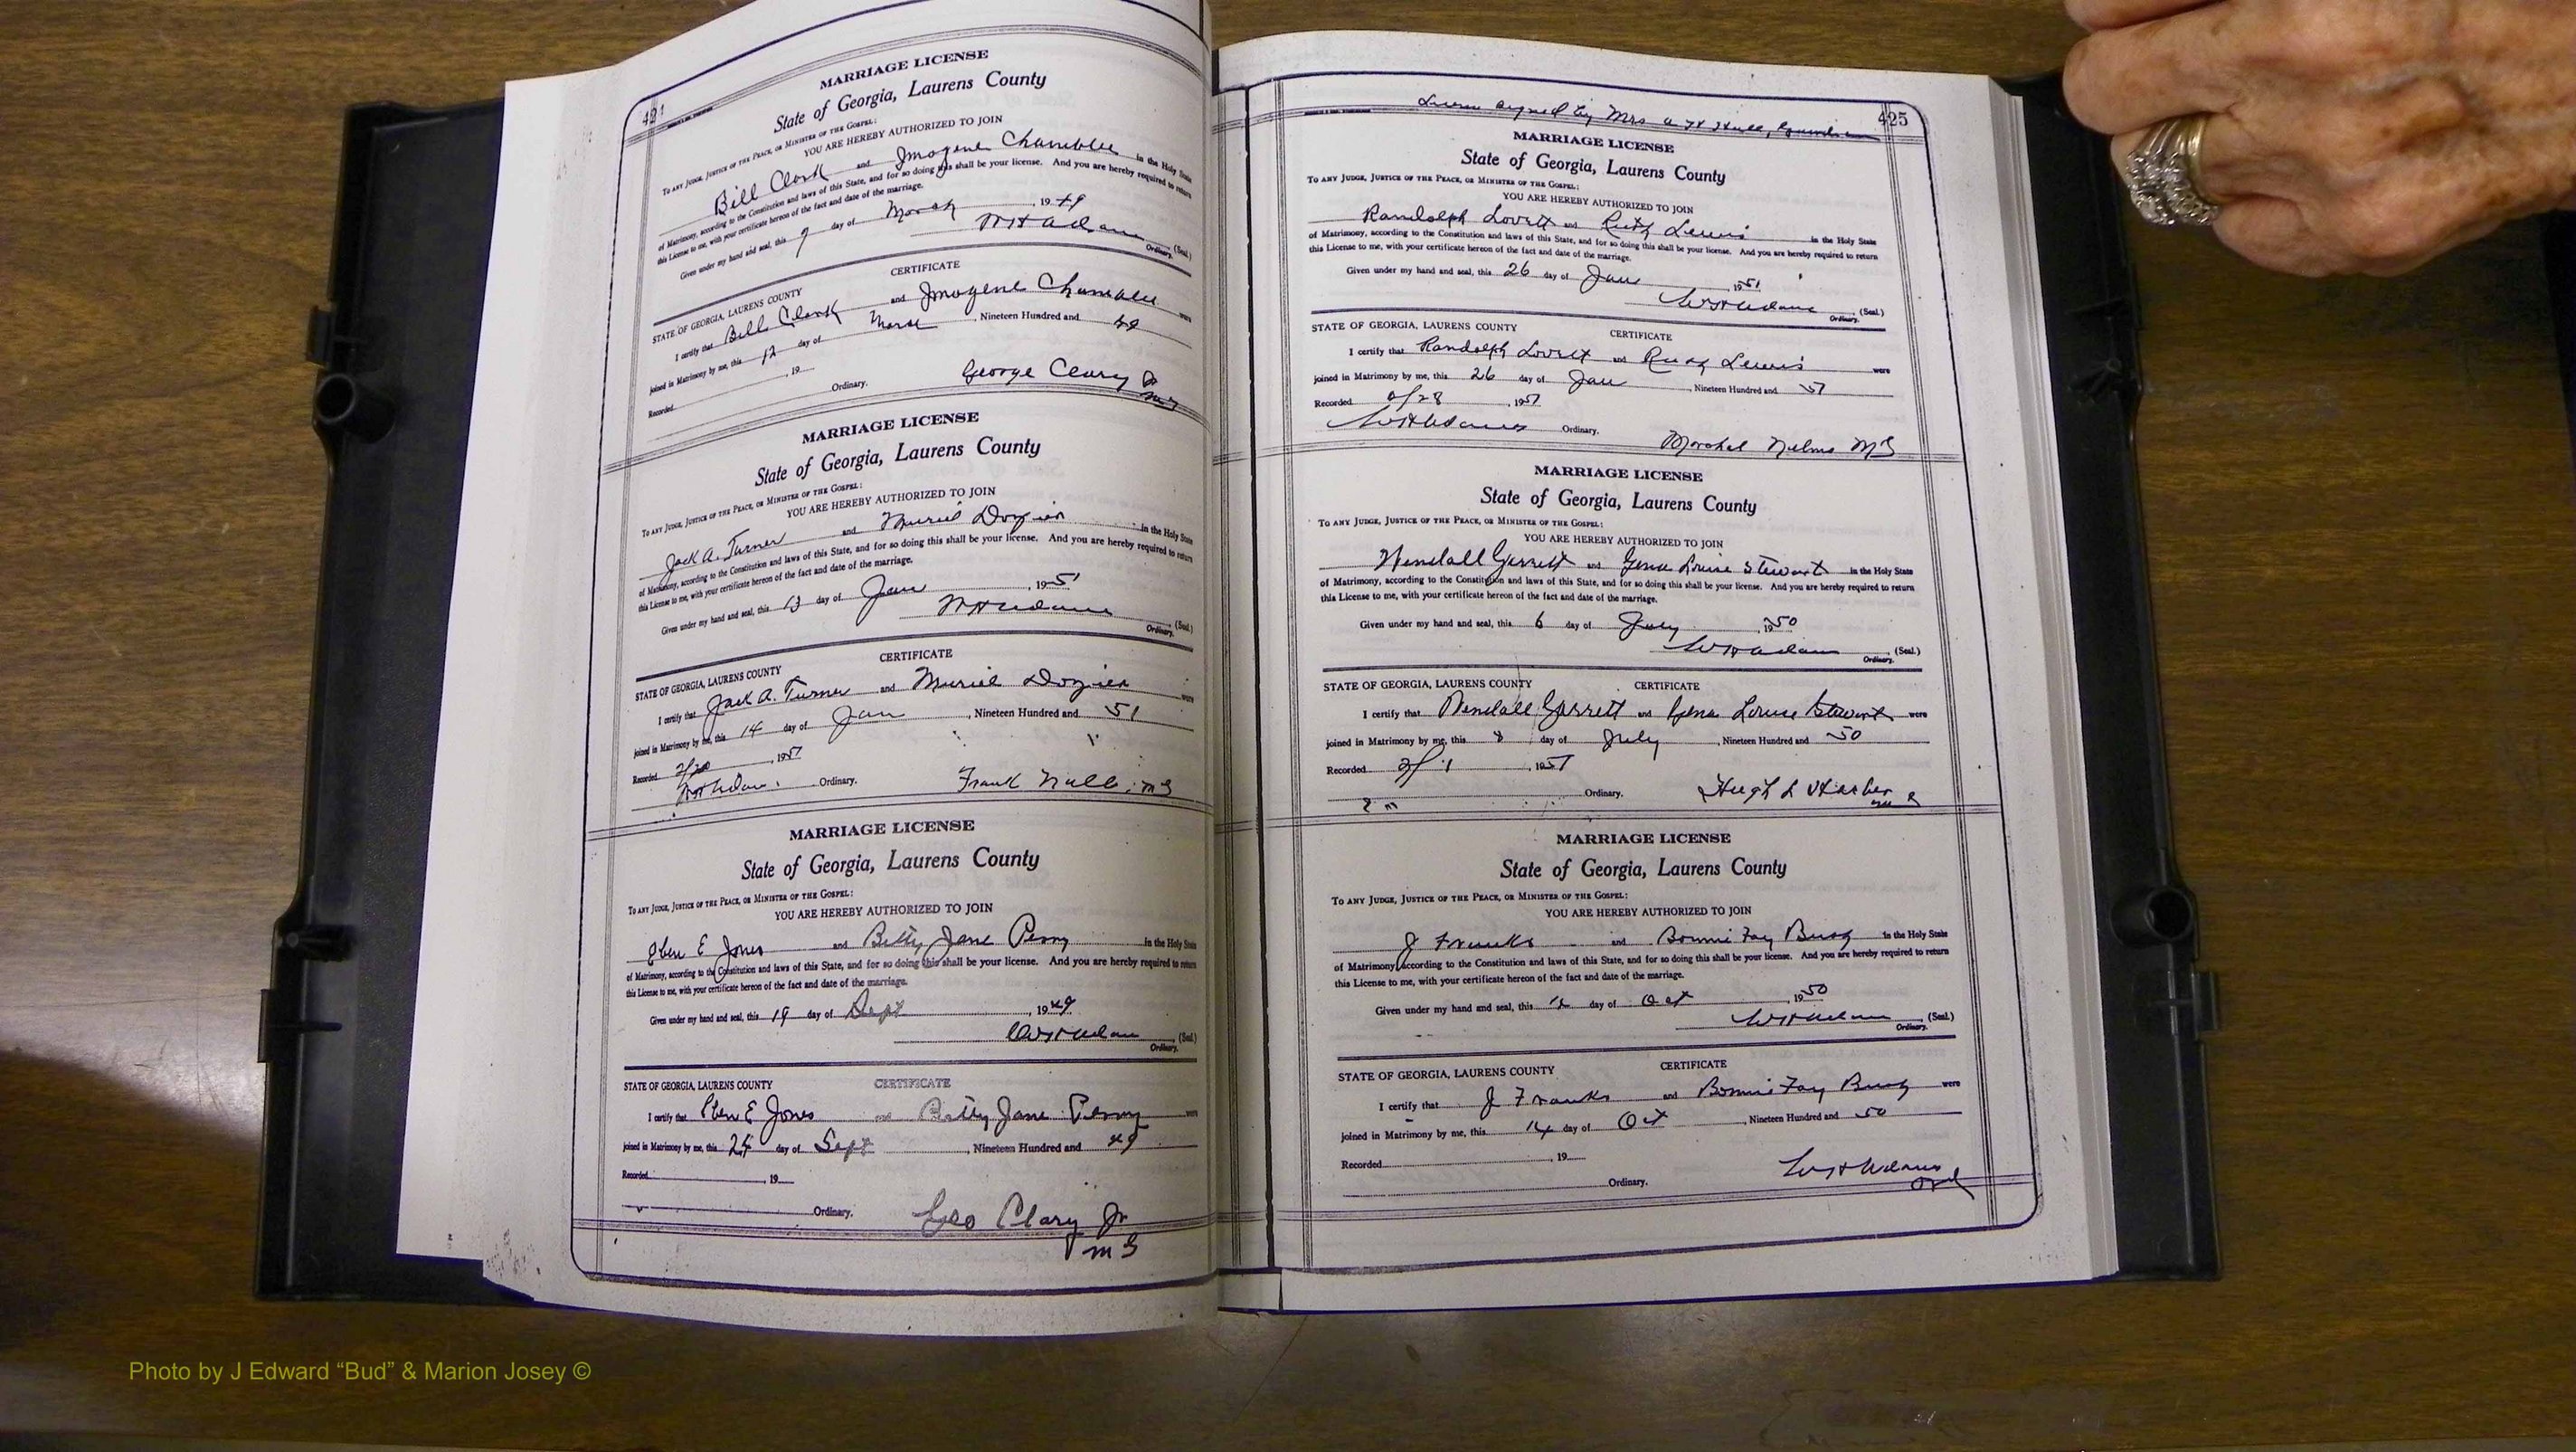 424
MARRIAGE LICENSE
State of Georgia, Laurens County
To ANY JUDGE, JUSTICE OF THE PEACE, OR MINISTER OF THE GOSPEL:
YOU ARE HEREBY AUTHORIZED TO JOIN
Bill Clark and Imogene Chamblee in the Holy State
of Matrimony, according to the Constitution and laws of this State, and for so doing this shall be your license. And you are hereby required to return
this License to me, with your certificate hereon of the fact and date of the marriage.
Given under my hand and seal, this 9 day of March, 1949
W H Adams (Seal.)
Ordinary.
CERTIFICATE
STATE OF GEORGIA, LAURENS COUNTY
I certify that Bill Clark and Imogene Chamblee were
joined in Matrimony by me, this 12 day of March, Nineteen Hundred and 49
Recorded , 19
Ordinary.
George Clary Jr
MG
MARRIAGE LICENSE
State of Georgia, Laurens County
To ANY JUDGE, JUSTICE OF THE PEACE, OR MINISTER OF THE GOSPEL:
YOU ARE HEREBY AUTHORIZED TO JOIN
Jack A. Turner and Muriel Dozier in the Holy State
of Matrimony, according to the Constitution and laws of this State, and for so doing this shall be your license. And you are hereby required to return
this License to me, with your certificate hereon of the fact and date of the marriage.
Given under my hand and seal, this 13 day of Jan, 1951
W H Adams (Seal.)
Ordinary.
CERTIFICATE
STATE OF GEORGIA, LAURENS COUNTY
I certify that Jack A. Turner and Muriel Dozier were
joined in Matrimony by me, this 14 day of Jan, Nineteen Hundred and 51
Recorded , 1951
W H Adams Ordinary.
Frank Nalls MG
MARRIAGE LICENSE
State of Georgia, Laurens County
To ANY JUDGE, JUSTICE OF THE PEACE, OR MINISTER OF THE GOSPEL:
YOU ARE HEREBY AUTHORIZED TO JOIN
Eben E Jones and Betty Jane Perry in the Holy State
of Matrimony, according to the Constitution and laws of this State, and for so doing this shall be your license. And you are hereby required to return
this License to me, with your certificate hereon of the fact and date of the marriage.
Given under my hand and seal, this 19 day of Sept, 1949
W H Adams (Seal.)
Ordinary.
STATE OF GEORGIA, LAURENS COUNTY CERTIFICATE
I certify that Eben E Jones and Betty Jane Perry were
joined in Matrimony by me, this 24 day of Sept, Nineteen Hundred and 49
Recorded , 19
Ordinary.
Geo Clary Jr
MG
signed by Mrs Hall, 425
MARRIAGE LICENSE
State of Georgia, Laurens County
To ANY JUDGE, JUSTICE OF THE PEACE, OR MINISTER OF THE GOSPEL:
YOU ARE HEREBY AUTHORIZED TO JOIN
Randolph Lovett and Ruth Lewis in the Holy State
of Matrimony, according to the Constitution and laws of this State, and for so doing this shall be your license. And you are hereby required to return
this License to me, with your certificate hereon of the fact and date of the marriage.
Given under my hand and seal, this 26 day of Jan, 1951
W H Adams (Seal.)
Ordinary.
STATE OF GEORGIA, LAURENS COUNTY CERTIFICATE
I certify that Randolph Lovett and Ruth Lewis were
joined in Matrimony by me, this 26 day of Jan, Nineteen Hundred and 51
Recorded , 1951
W H Adams Ordinary.
Marshal Nelms MG
MARRIAGE LICENSE
State of Georgia, Laurens County
To ANY JUDGE, JUSTICE OF THE PEACE, OR MINISTER OF THE GOSPEL:
YOU ARE HEREBY AUTHORIZED TO JOIN
Wendall Garrett and Gena Louise Stewart in the Holy State
of Matrimony, according to the Constitution and laws of this State, and for so doing this shall be your license. And you are hereby required to return
this License to me, with your certificate hereon of the fact and date of the marriage.
Given under my hand and seal, this 6 day of July, 1950
W H Adams (Seal.)
Ordinary.
STATE OF GEORGIA, LAURENS COUNTY CERTIFICATE
I certify that Wendall Garrett and Gena Louise Stewart were
joined in Matrimony by me, this 8 day of July, Nineteen Hundred and 50
Recorded 2/1, 1951
Ordinary.
Hugh L
MARRIAGE LICENSE
State of Georgia, Laurens County
To ANY JUDGE, JUSTICE OF THE PEACE, OR MINISTER OF THE GOSPEL:
YOU ARE HEREBY AUTHORIZED TO JOIN
J Franks and Bonnie Fay Bush in the Holy State
of Matrimony, according to the Constitution and laws of this State, and for so doing this shall be your license. And you are hereby required to return
this License to me, with your certificate hereon of the fact and date of the marriage.
Given under my hand and seal, this day of Oct, 1950
W H Adams (Seal.)
Ordinary.
STATE OF GEORGIA, LAURENS COUNTY CERTIFICATE
I certify that J Franks and Bonnie Fay Bush were
joined in Matrimony by me, this 14 day of Oct, Nineteen Hundred and 50
Recorded , 19
Ordinary.
W H Adams
Ord
Photo by J Edward “Bud” & Marion Josey ©